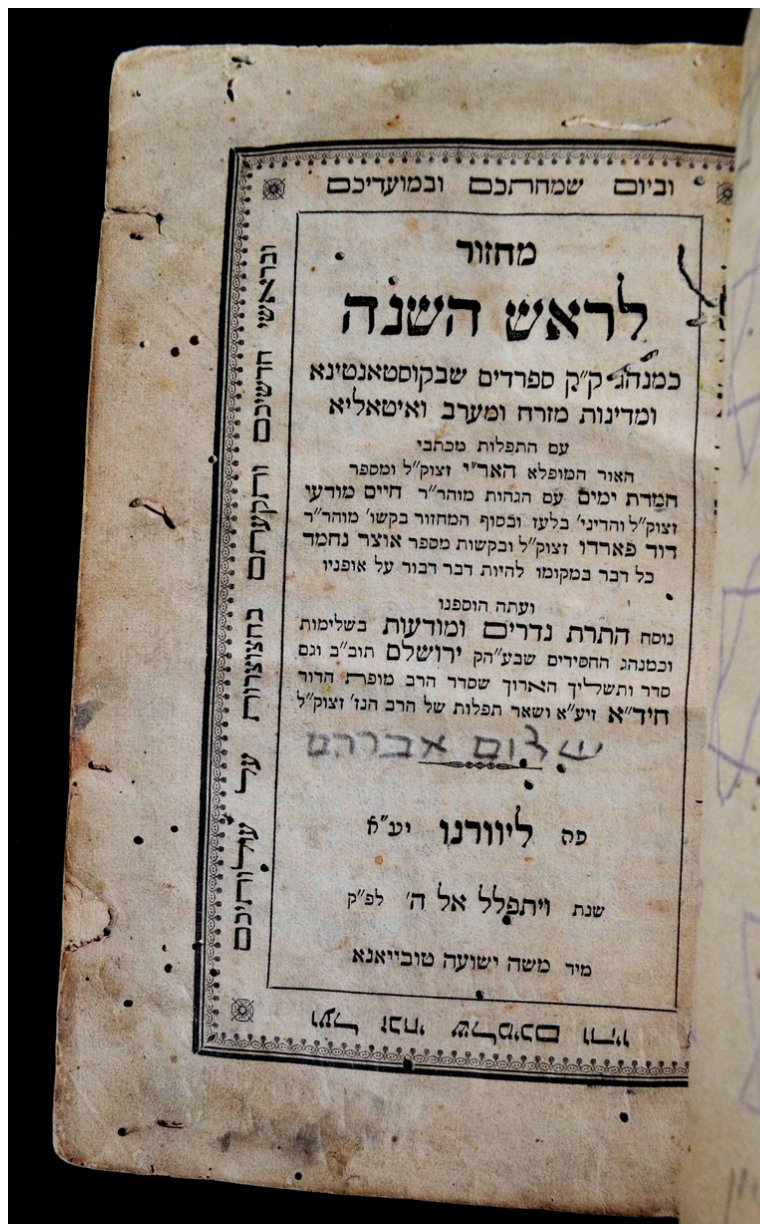 וביום שמחתכם ובמועדיכם
מחזור
לראש השנה
כמנהג ק״ק ספרדים שבקוסטאנטינא
ומדינות מזרח ומערב ואיטאליא
עם התפלות מכתבי
האור המופלא האר״י זצוק״ל ומספר
חמדת ימים עם הגהות מוהר״ר חיים מודעי
זצוק״ל והדיני׳ בלעז ובסוף המחזור בקשו׳ מוהר״ר
דוד פארדו זצוק״ל ובקשות מספר אוצר נחמד
כל דבר במקומו להיות דבר דבור על אופניו
ועתה הוספנו
נוסח התרת נדרים ומודעות בשלימות
וכמנהג החסידים שבע״הק ירושלם תוב״ב וגם
סדר ותשליך הארוך שסדר הרב מופת הדור
חיד״א זיע״א ושאר תפלות של הרב הנז׳ זצוק״ל
שלום אברהם
פה ליוורנו יע״א
שנת ויתפלל אל ה׳ לפ״ק
מיר משה ישועה טובייאנא
ובראשי חדשיכם ותקעתם בחצוצרות על עולותיכם
ועל זבחי שלמיכם והיו